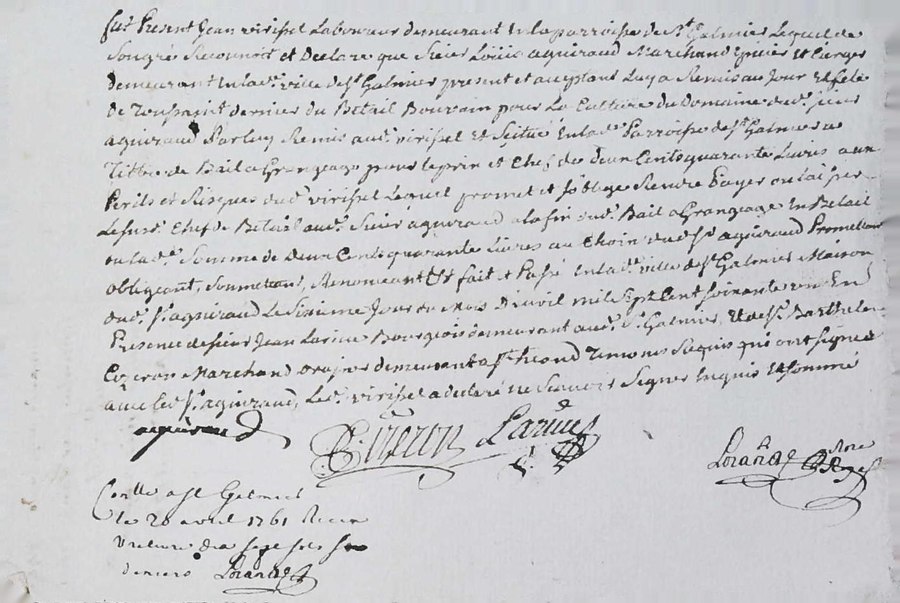 fut Present Jean virissel Laboureur demeurant en la parroisse de St Galmier Lequel de
Son gré Reconnoit et Declare que Sieur Loüis aguiraud Marchand Epicier et Cierges
demeurant en lade ville de St Galmier present et aceptant Luy a Remis au Jour et fete
De Toussaint dernier du Betail Bouvain pour La Culture du Domaine dud. sieur
aguiraud Par luy Remis aud. virissel et Scitué En lade Parroisse de St Galmier a
Tittre de Bail a Grangeage pour le prix et Chef de deux Cents quarante Livres aux
Perils et Risques dud. virissel Lequel promet et s'oblige Rendre Payer ou Laisser
Le susd. Chef de Betail aud. Sieur aguiraud a la fin dud. Bail a Grangeage En Betail
ou lad. Somme de deux Cents quarante Livres au Choix dud. Sr. aguiraud Promettant
obligeant, Soumettant, Renonceant &a fait et Passé En lade ville de St Galmier Maison
dud. Sr. aguiraud Le Sixieme Jour du Mois D'avril mil Sept Cent soixante un En
Presence de sieur Jean Larive Bourgeois demeurant aud. St. Galmier Et de Sr. Barthelemy
Marchand demeurant a St Temoins Requis qui ont signé
avec led. Sr. aguiraud, Led. virissel a declaré ne Scavoir Signer Enquis et sommé
aguiraud Larive
Lorand
Conllé a St Galmier
le 28 avril 1761 Receu
sept sols six
deniers Lorand